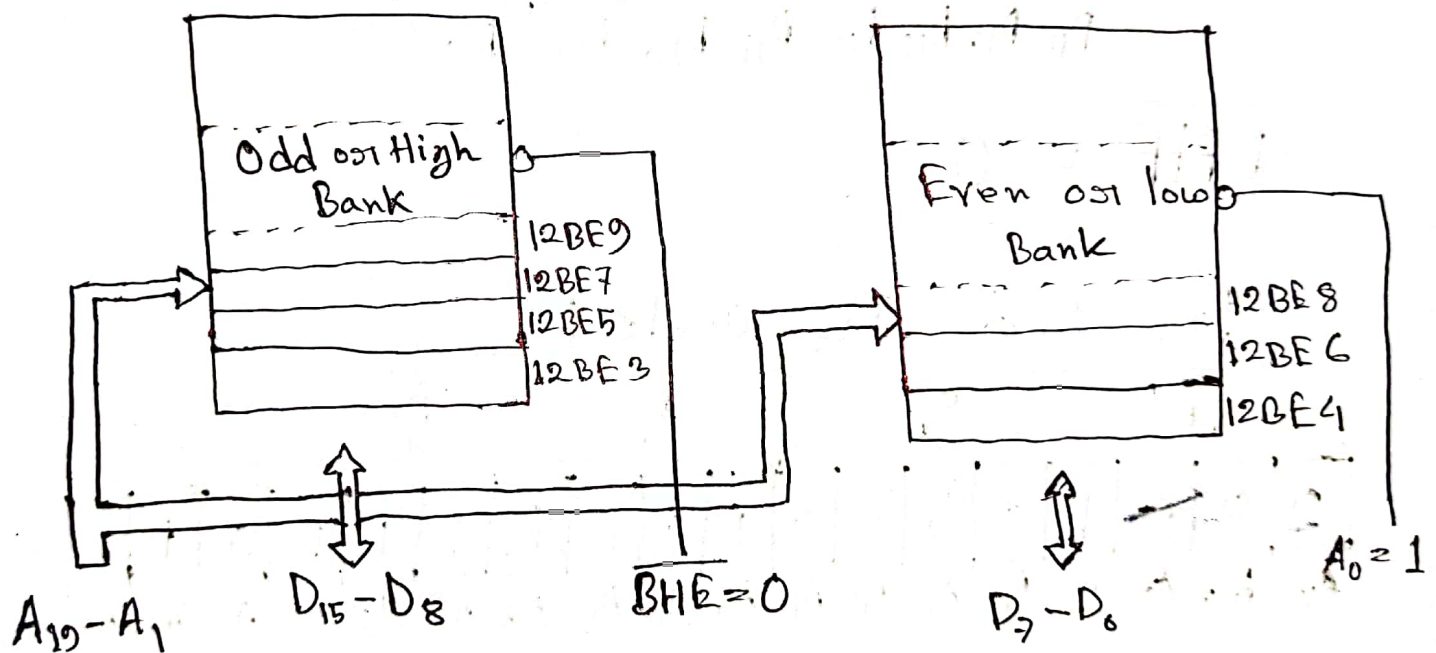 Odd or High
Bank
12BE9
12BE7
12BE5
12BE3
Even or low
Bank
12BE8
12BE6
12BE4
A19-A1
D15-D8
BHE=0
D7-D0
A0=1